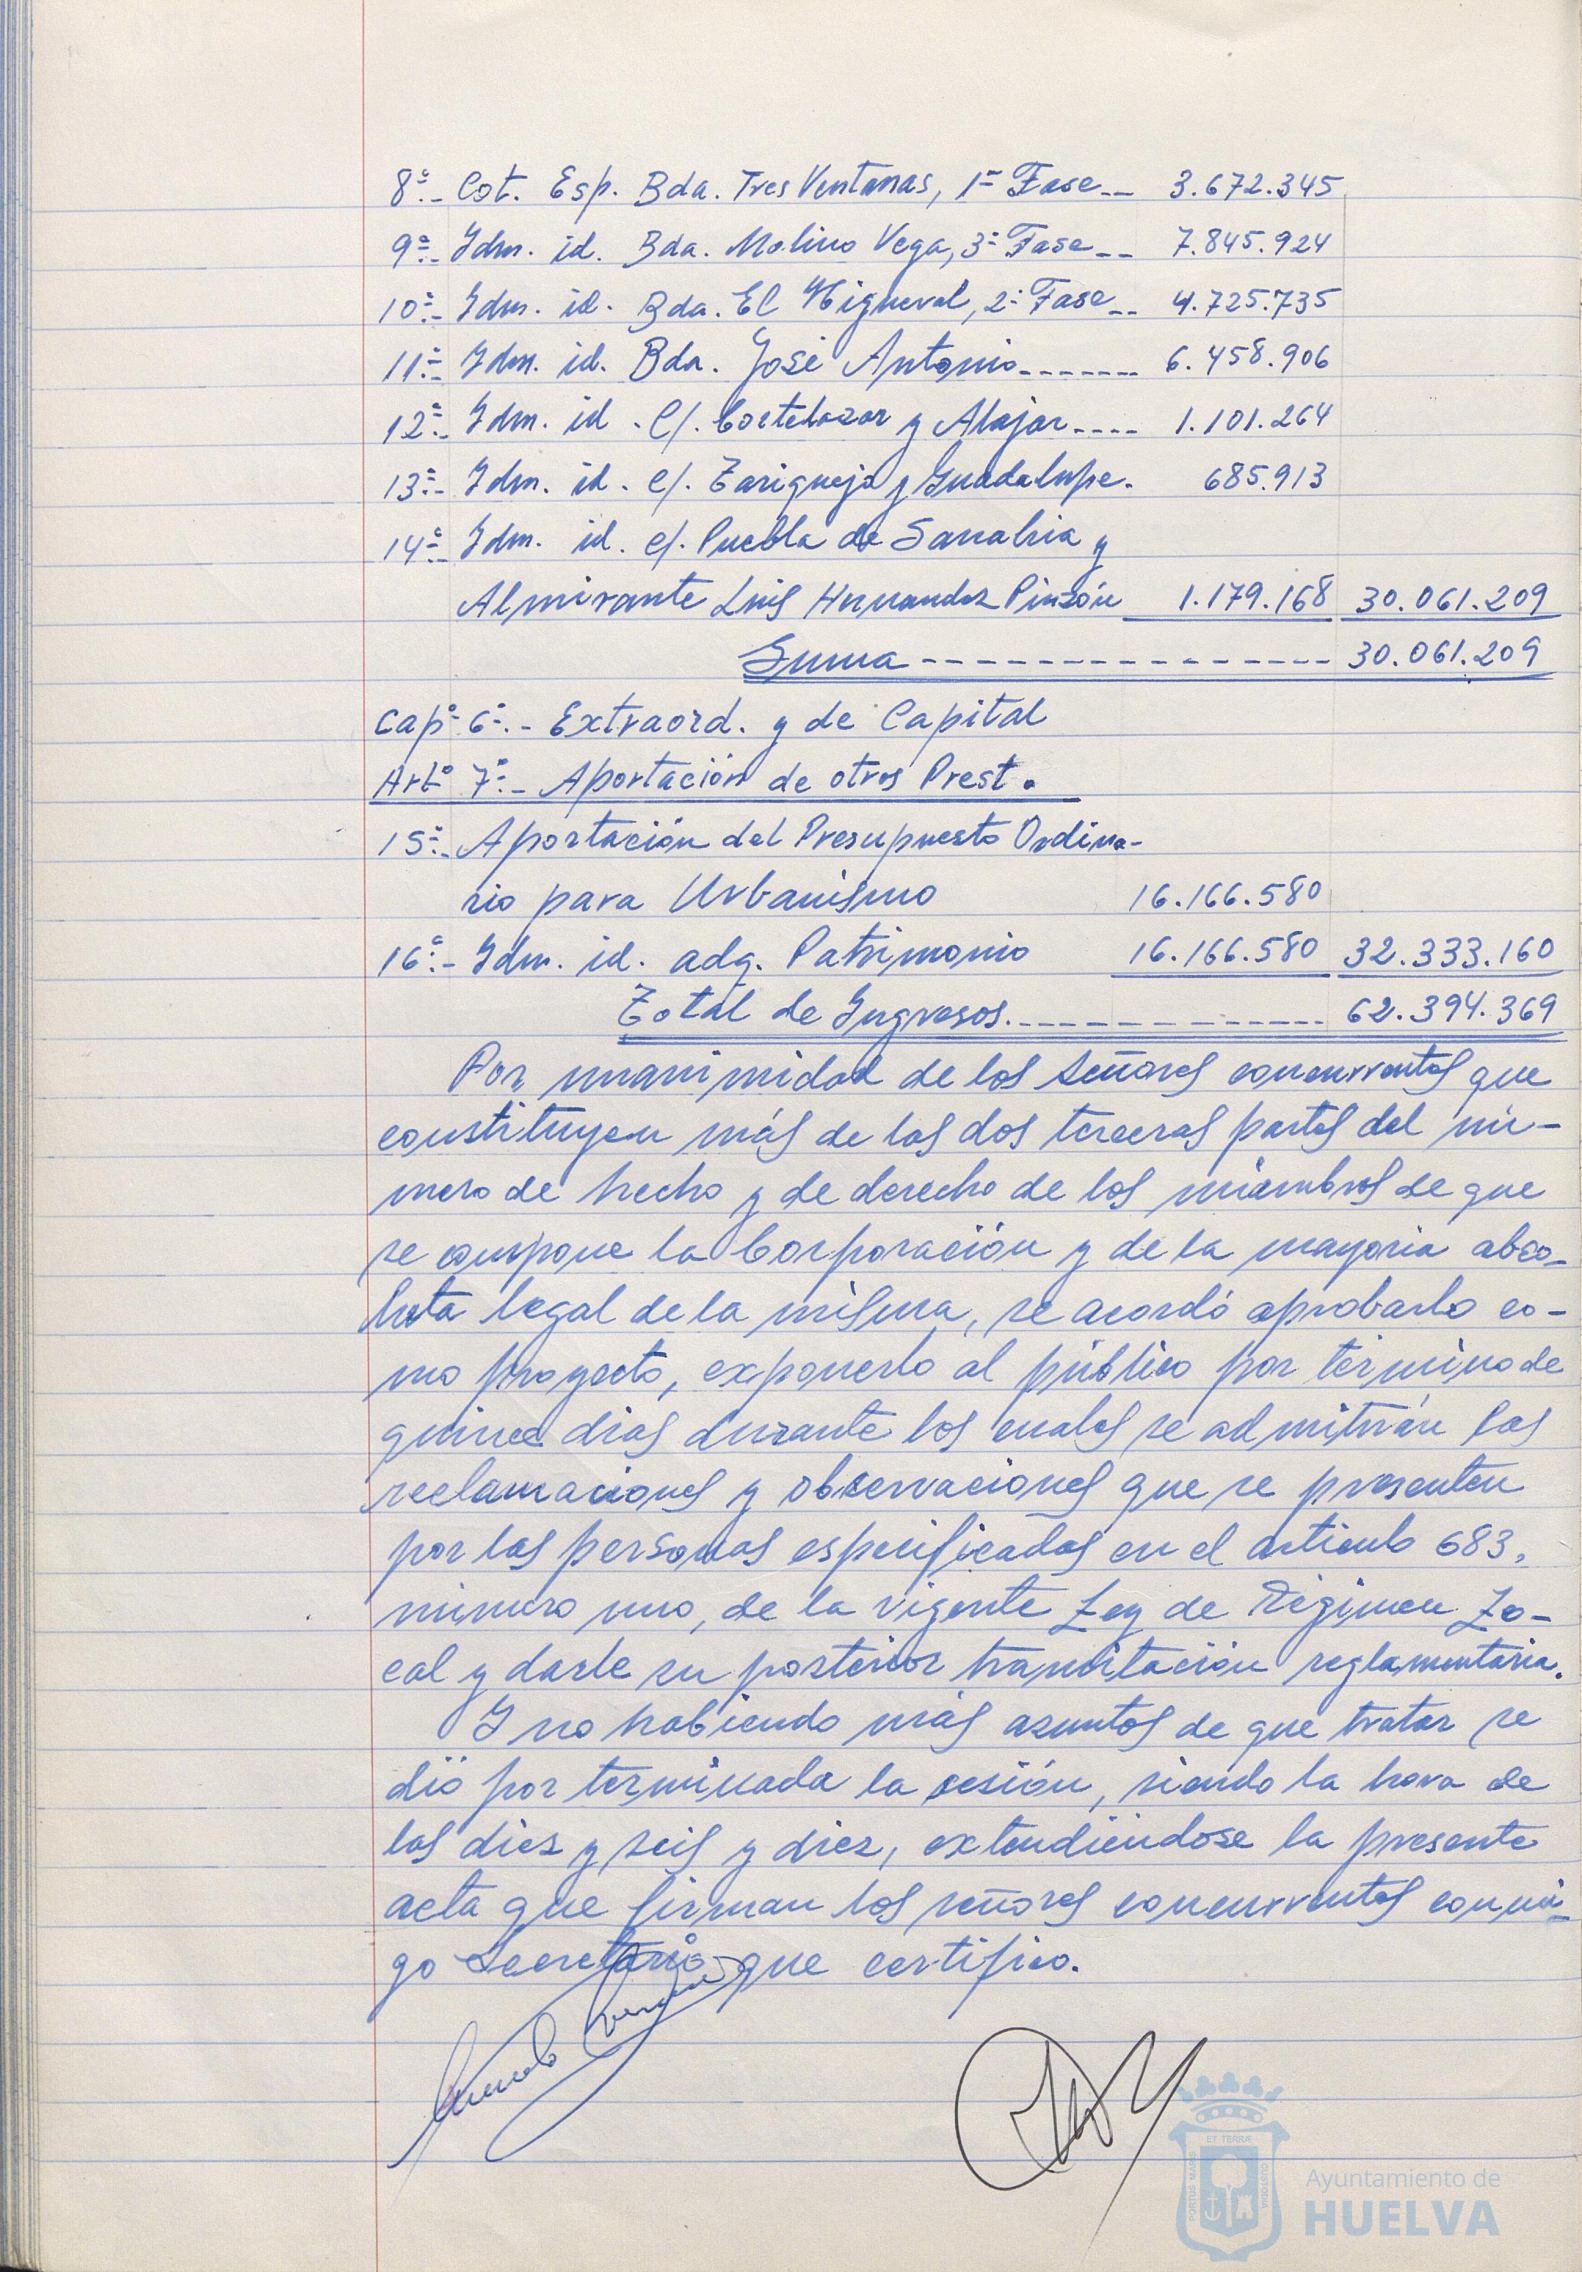 8ª.- Cot. Esp. Bda. Tres Ventanas, 1ª Fase-- 3.672.345
9ª.- Idm. id. Bda. Molino Vega, 3ª Fase-- 7.845.924
10ª.- Idm. id. Bda. El Higueral, 2ª Fase-- 4.725.735
11ª.- Idm. id. Bda. José Antonio------- 6.458.906
12ª.- Idm. id. C/. Cortelazor y Alajar---- 1.101.264
13ª.- Idm. id. c/. Tariquejo y Guadalupe. 685.913
14ª.- Idm. id. c/. Puebla de Sanabria y
Almirante Luis Hernandez Pinzón 1.179.168 30.061.209
Suma --------------- 30.061.209
Capº 6º.- Extraord. y de Capital
Artº 7º.- Aportación de otros Prest.
15ª.- Aportación del Presupuesto Ordina-
rio para Urbanismo 16.166.580
16ª.- Idm. id. adq. Patrimonio 16.166.580 32.333.160
Total de Ingresos.------------- 62.394.369
Por unanimidad de los señores concurrentes que
constituyen más de las dos terceras partes del nú-
mero de hecho y de derecho de los miembros de que
se compone la Corporación y de la mayoria abso-
luta legal de la misma, se acordó aprobarlo co-
mo proyecto, exponerlo al público por término de
quince dias durante los cuales se admitirán las
reclamaciones y observaciones que se presenten
por las personas especificadas en el articulo 683,
número uno, de la vigente Ley de Régimen Lo-
cal y darle su posterior tramitación reglamentaria.
Y no habiendo más asuntos de que tratar se
dió por terminada la sesión, siendo la hora de
las diez y seis y diez, extendiéndose la presente
acta que firman los señores concurrentes conmi-
go Secretario que certifico.
PORTUS MARIS ET TERRÆ CUSTODIA
Ayuntamiento de
HUELVA